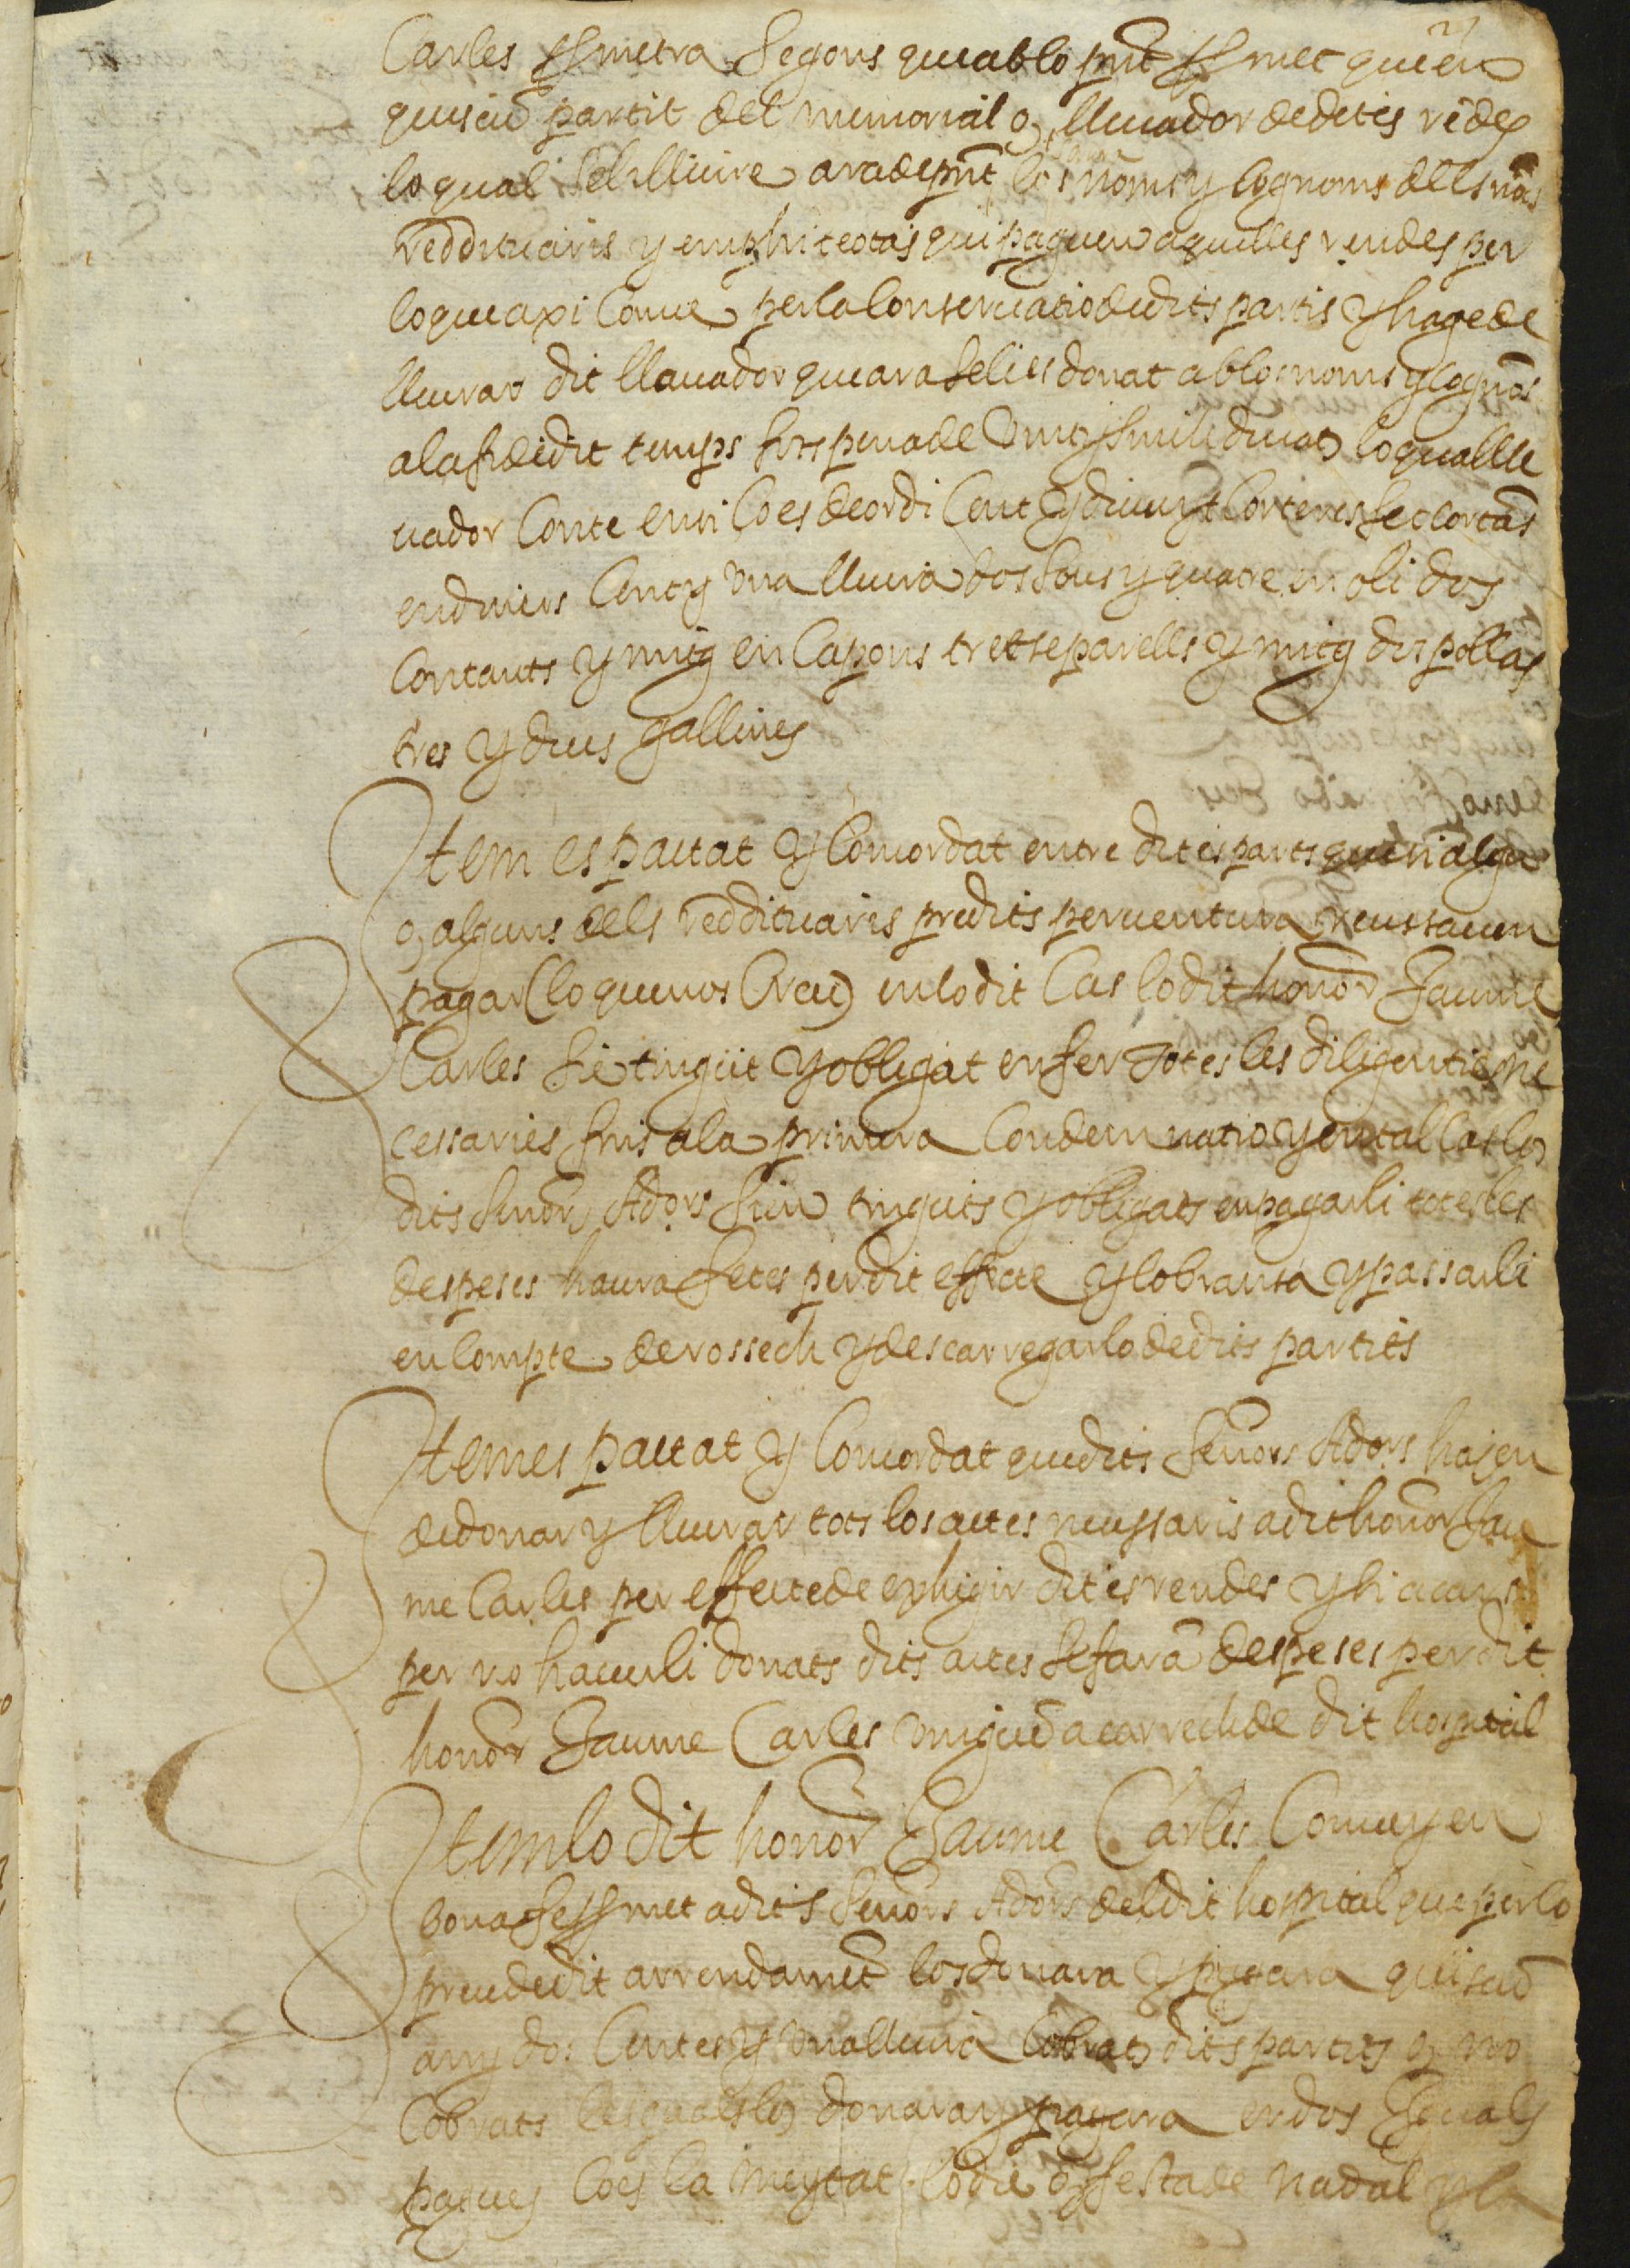 Carles prometra segons que ab lo pnt promet que en
quiscu partit del memorial o, lleuador de dites rēdes
lo qual se li lliure ara de pnt los noms y cognoms dels nos
reddituaris y emphiteotas qui paguen aquelles rendes per
lo que axi conue per la conseruatio de dits partits y hage de
lliurar dit lleuador que ara se li es donat ab los noms y cognōs
a la fi de dit temps sots pena de ducats lo qual lle
uador conte en si ço es de ordi cent y divuyt corteres set cortās
en diners cent y vna lliura dos sous y quatre en oli dos
cortants y mitg en capons tretse parells y mitg dos pollas
tres y dues gallines
Item es pactat y concordat entre dites parts que si algu
o, alguns dels reddituaris predits per uentura recussauen
pagar (lo que nos creu) en lo dit cas lo dit honor Jaume
Carles sie tingut y obligat en fer totes les diligenties ne
cessaries fins a la primera condemnatio y en tal cas los
dits senors Adors sien tinguts y obligats en pagarli totes les
despeses haura fetes per dit effecte y cobransa y passarli
en compte de rossech y descarregarlo de dits partits
Item es pactat y concordat que dits senors Adors hajen
de donar y lliurar tots los actes necessaris a dit honor Jau
me Carles per effecte de exhigir dites rendes y si a cars
per no hauerli donats dits actes se farā despeses per dit
honor Jaume Carles vingue a carrech de dit hospital
Item lo dit honor Jaume Carles conue y en
bona fe promet a dits senors Adors del dit hospital que per lo
preu de dit arrendamēt los donara y pagara quiscū
any dos centes y vna lliura cobrats dits partits o, no
cobrats les quals los donara y pagara en dos eguals
pagues ço es la meytat lo die o, festa de Nadal y la